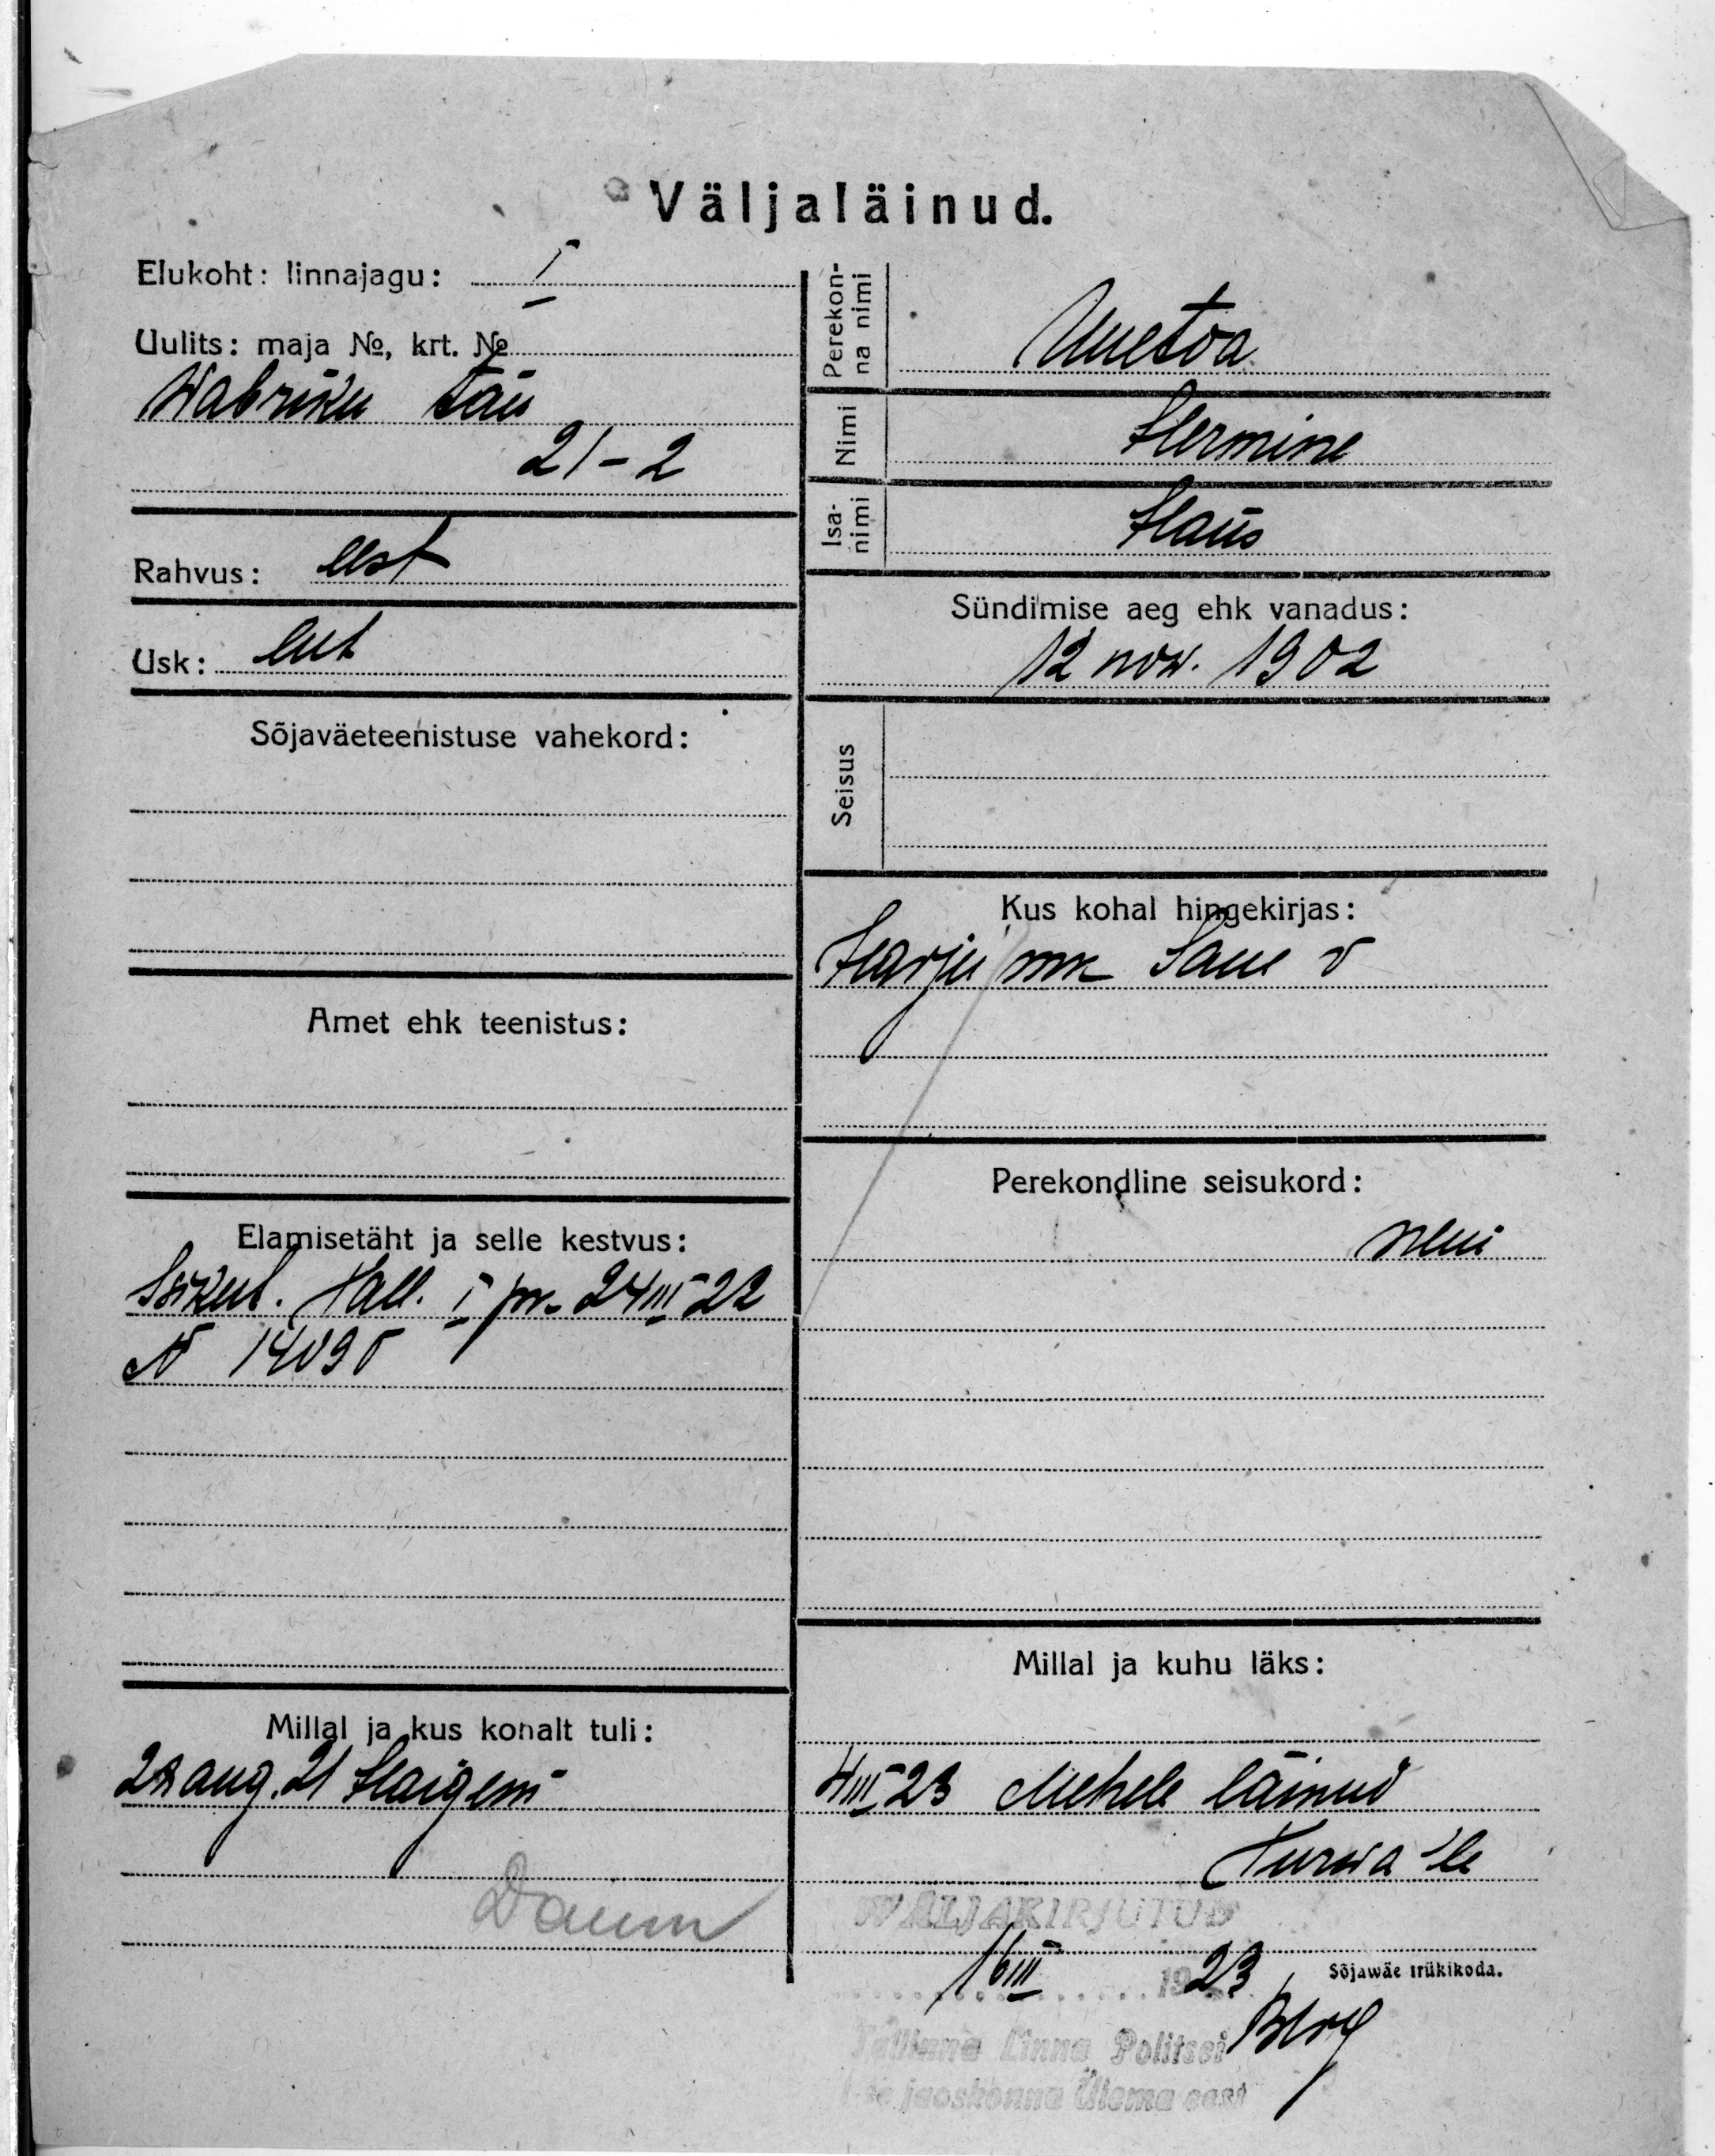 Väljaläinud.
Elukoht: linnajagu: I
Uulits: maja №, krt. №
Wabriku tän
21-2
Rahvus: eest
Usk: lut
Sõjaväeteenistuse vahekord:
Amet ehk teenistus:
Elamisetäht ja selle kestvus:
Isikut. Tall. I pr. 24 III 22
№ 14090
Millal ja kus kohalt tuli:
22 aug. 21
Daum
Perekon-
na nimi
Uuetoa
Nimi
Hermine
Isa-
nimi
Hans
Sündimise aeg ehk vanadus:
12 nov. 1902
Seisus
Kus kohal hingekirjas:
Harju mk Saue v
Perekondline seisukord:
neiu
Millal ja kuhu läks:
4 III 23 Mehele läinud
Turwa 'le
WÄLJAKIRJUTUD
16 III 1923
Sõjawäe trükikoda.
Berg
Tallinna Linna Politsei
I-se jaoskonna Ülema eest